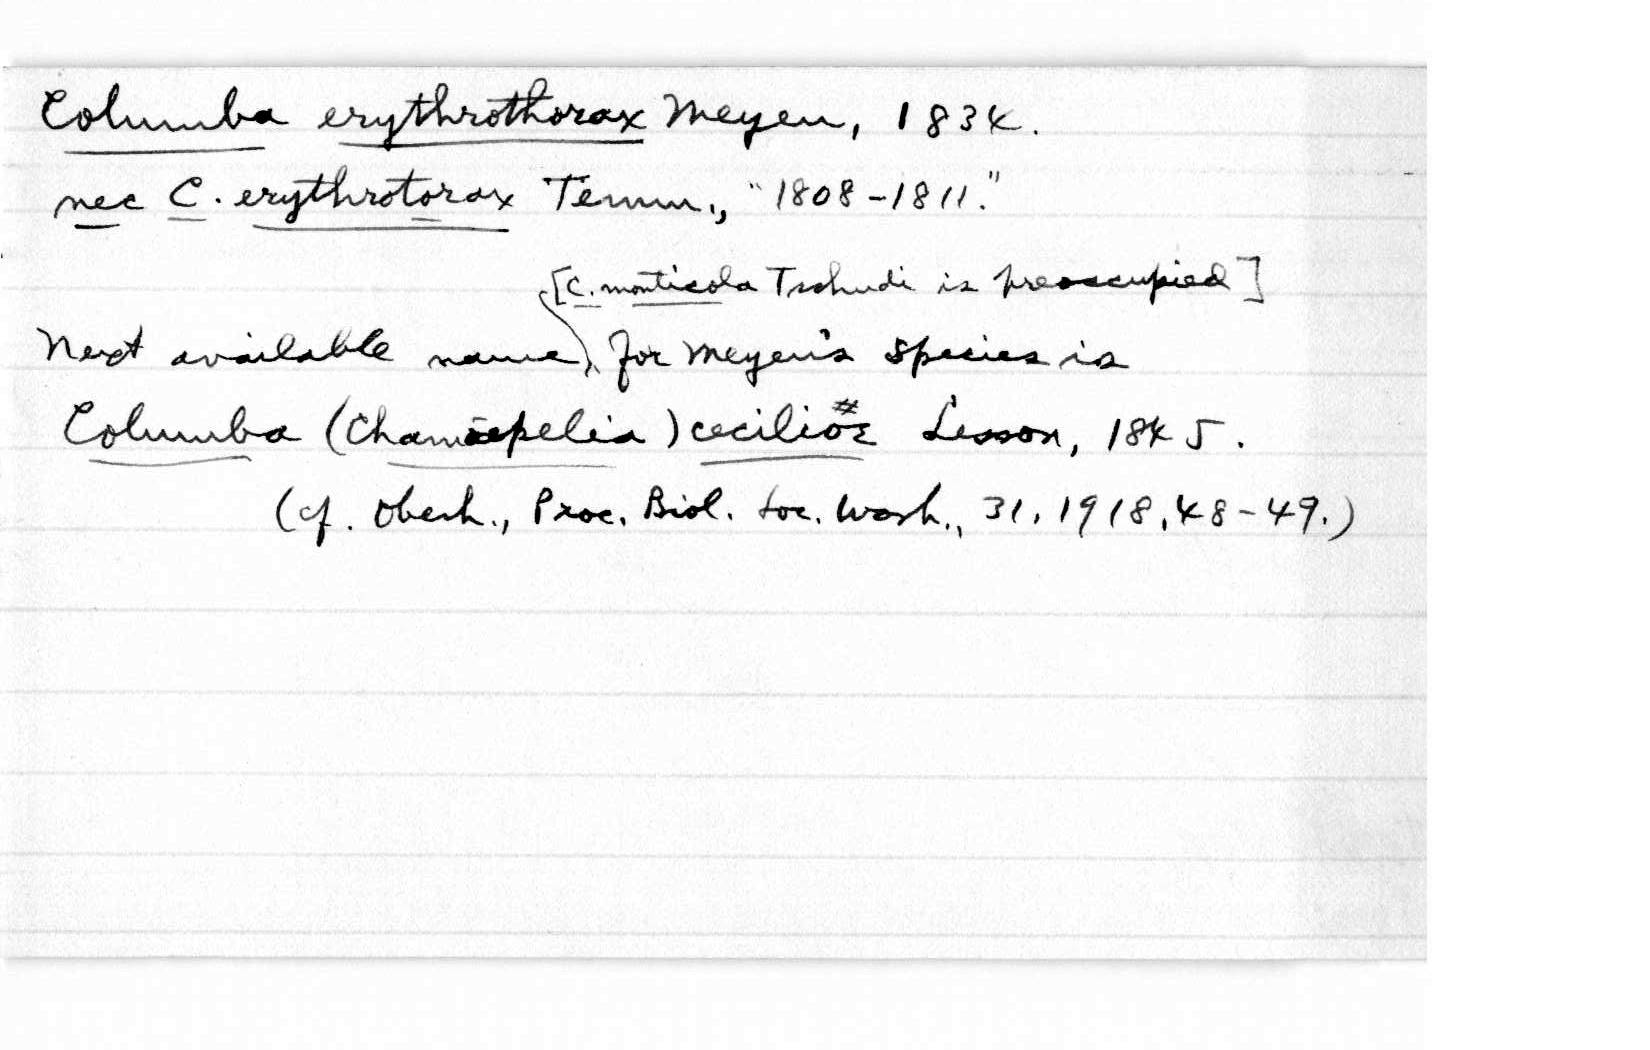 Columba erythrothorax Meyen, 1834.
nec C. erythrotorax Temm., "1808-1811."
[C. monticola Tschudi is preoccupied]
Next available name, for Meyen's species is
Columba (Chamæpelia) ceciliæ Lesson, 1845.
(cf. Oberh., Proc. Biol. Soc. Wash., 31, 1918, 48-49.)